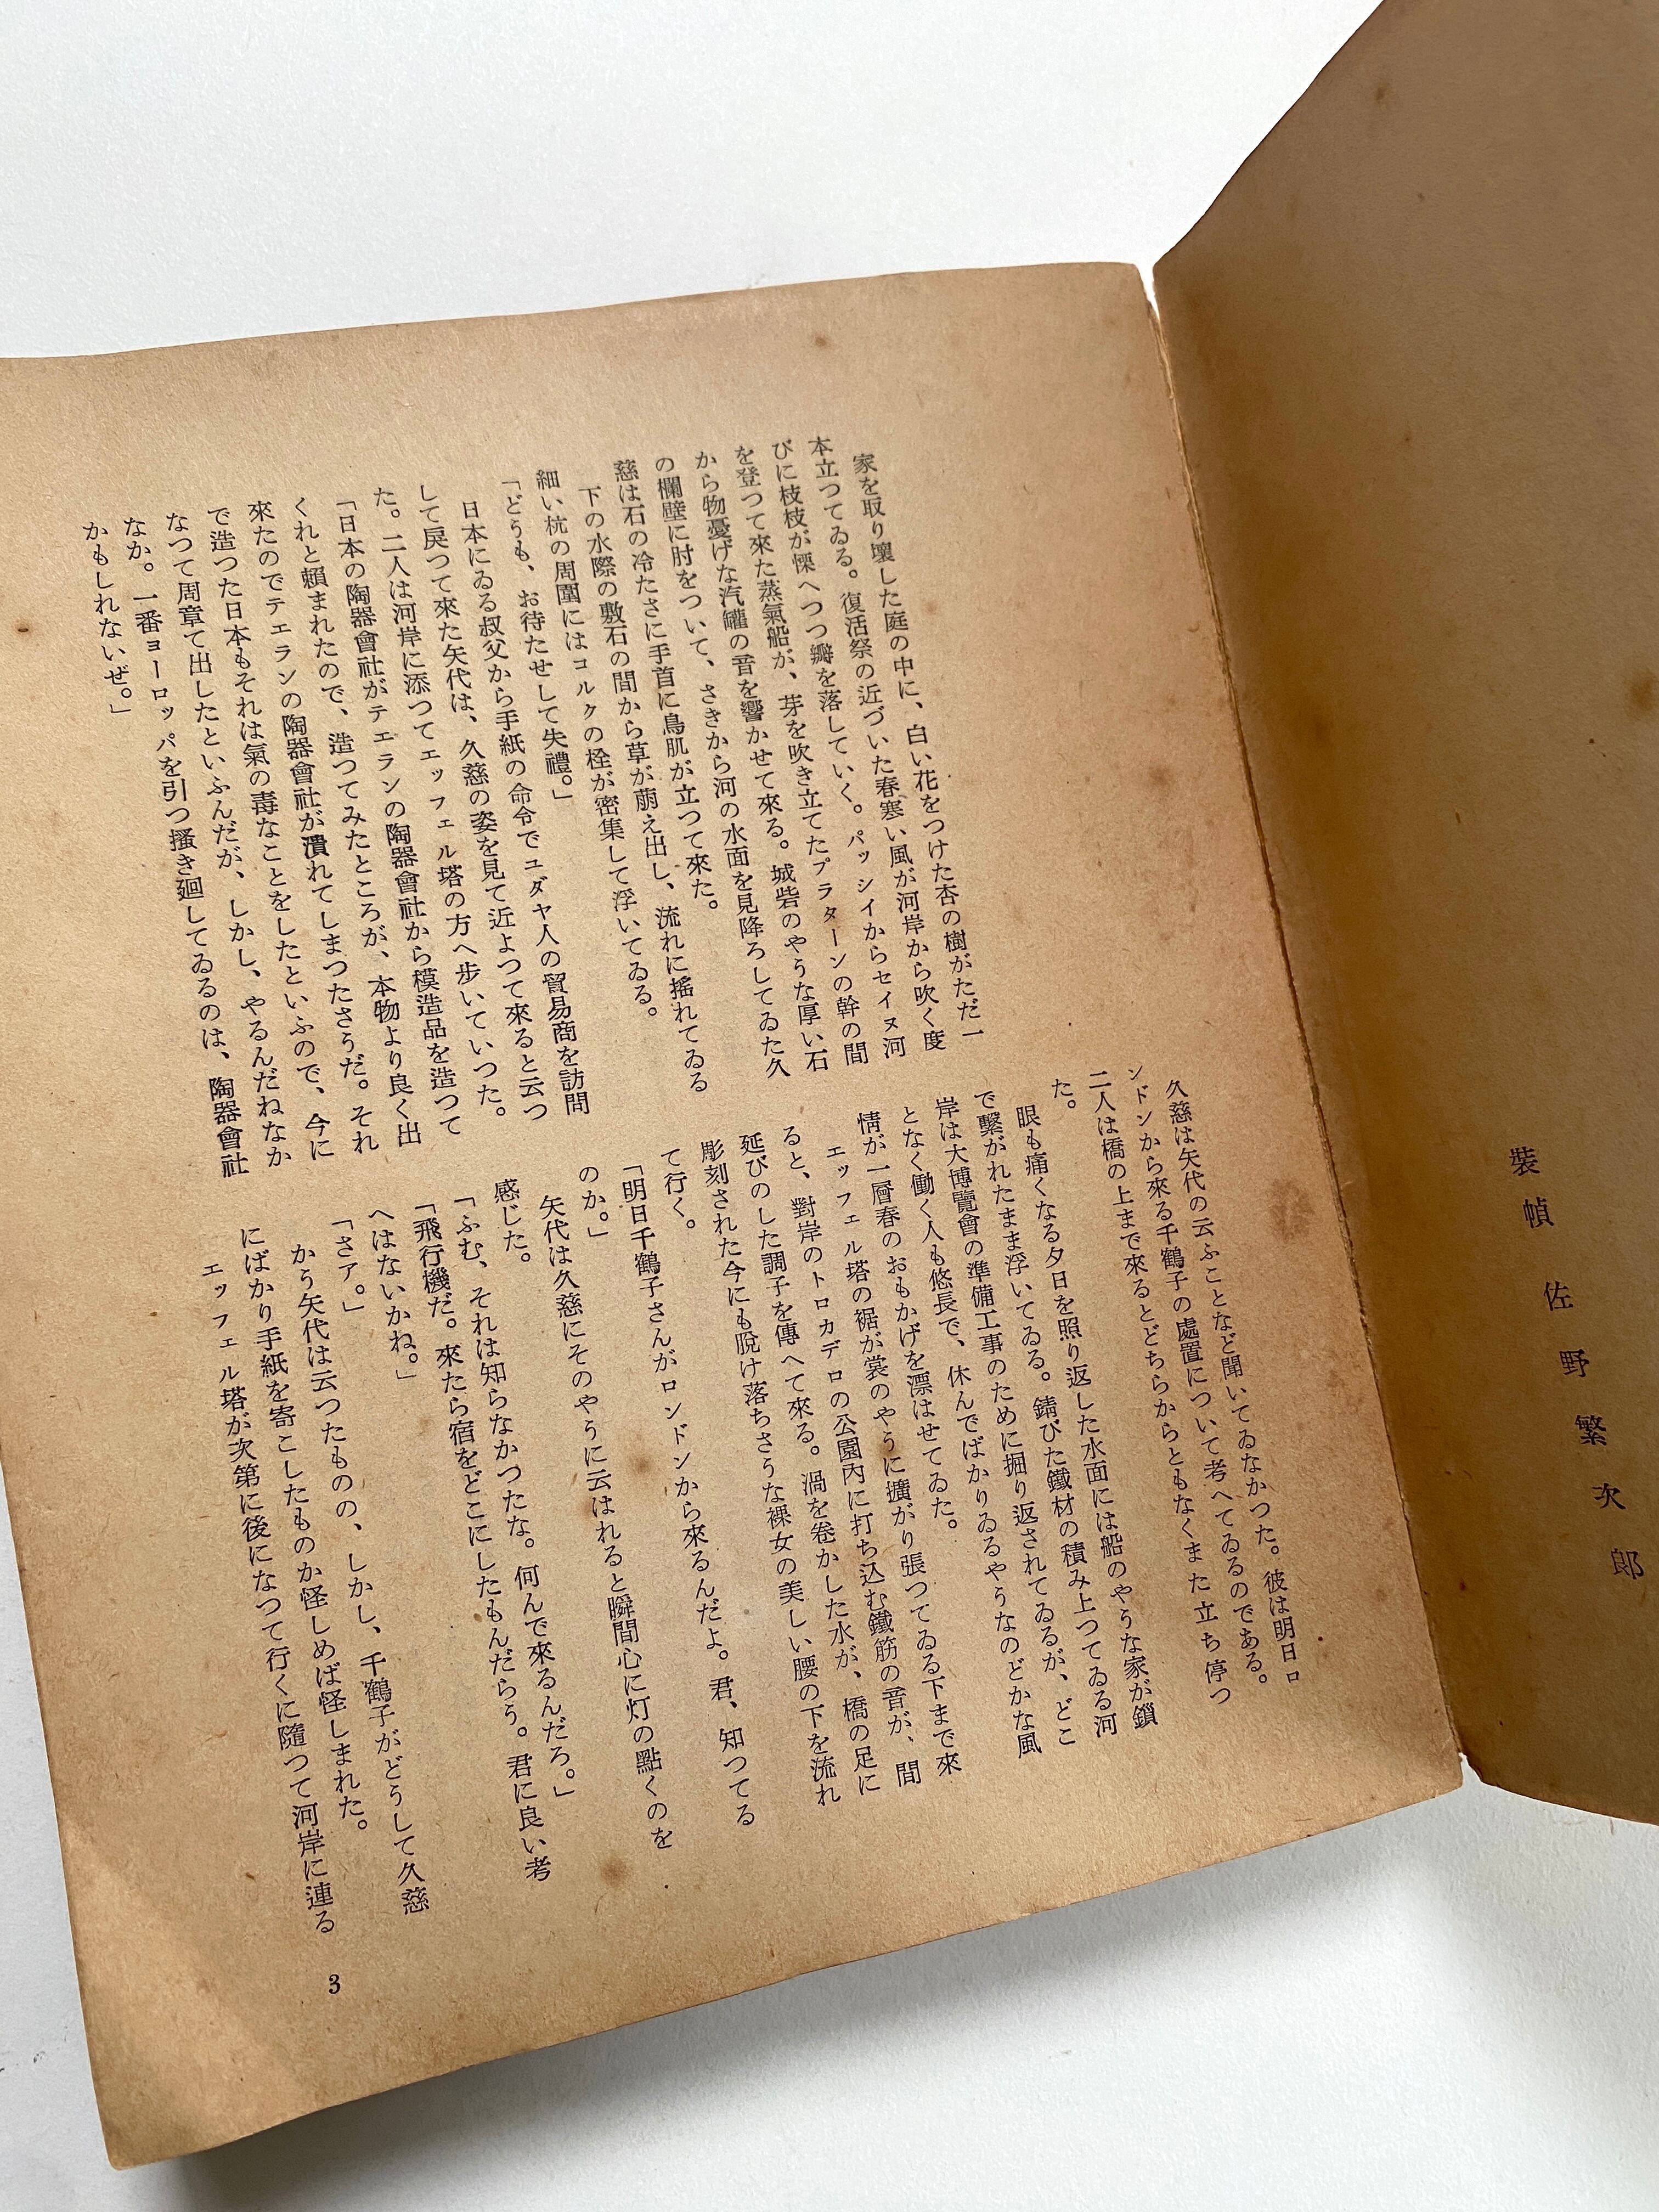 裝幀 佐野繁次郎
家を取り壞した庭の中に、白い花をつけた杏の樹がただ一
本立つてゐる。復活祭の近づいた春寒い風が河岸から吹く度
びに枝枝が慄へつつ瓣を落していく。パッシイからセイヌ河
を登つて來た蒸氣船が、芽を吹き立てたプラターンの幹の間
から物憂げな汽罐の音を響かせて來る。城砦のやうな厚い石
の欄壁に肘をついて、さきから河の水面を見降ろしてゐた久
慈は石の冷たさに手首に鳥肌が立つて來た。
下の水際の敷石の間から草が萠え出し、流れに搖れてゐる
細い杭の周圍にはコルクの栓が密集して浮いてゐる。
「どうも、お待たせして失禮。」
日本にゐる叔父から手紙の命令でユダヤ人の貿易商を訪問
して戾つて來た矢代は、久慈の姿を見て近よつて來ると云つ
た。二人は河岸に添つてエッフェル塔の方へ步いていつた。
「日本の陶器會社がテエランの陶器會社から模造品を造つて
くれと賴まれたので、造つてみたところが、本物より良く出
來たのでテエランの陶器會社が潰れてしまつたさうだ。それ
で造つた日本もそれは氣の毒なことをしたといふので、今に
なつて周章て出したといふんだが、しかし、やるんだねなか
なか。一番ヨーロッパを引つ搔き廻してゐるのは、陶器會社
かもしれないぜ。」
久慈は矢代の云ふことなど聞いてゐなかつた。彼は明日ロ
ンドンから來る千鶴子の處置について考へてゐるのである。
二人は橋の上まで來るとどちらからともなくまた立ち停つ
た。
眼も痛くなる夕日を照り返した水面には船のやうな家が鎖
で繫がれたまま浮いてゐる。錆びた鐵材の積み上つてゐる河
岸は大博覽會の準備工事のために掘り返されてゐるが、どこ
となく働く人も悠長で、休んでばかりゐるやうなのどかな風
情が一層春のおもかげを漂はせてゐた。
エッフェル塔の裾が裳のやうに擴がり張つてゐる下まで來
ると、對岸のトロカデロの公園內に打ち込む鐵筋の音が、間
延びのした調子を傳へて來る。渦を卷かした水が、橋の足に
彫刻された今にも脫け落ちさうな裸女の美しい腰の下を流れ
て行く。
「明日千鶴子さんがロンドンから來るんだよ。君、知つてる
のか。」
矢代は久慈にそのやうに云はれると瞬間心に灯の點くのを
感じた。
「ふむ、それは知らなかつたな。何んで來るんだろ。」
「飛行機だ。來たら宿をどこにしたもんだらう。君に良い考
へはないかね。」
「さア。」
かう矢代は云つたものの、しかし、千鶴子がどうして久慈
にばかり手紙を寄こしたものか怪しめば怪しまれた。
エッフェル塔が次第に後になつて行くに隨つて河岸に連る
3